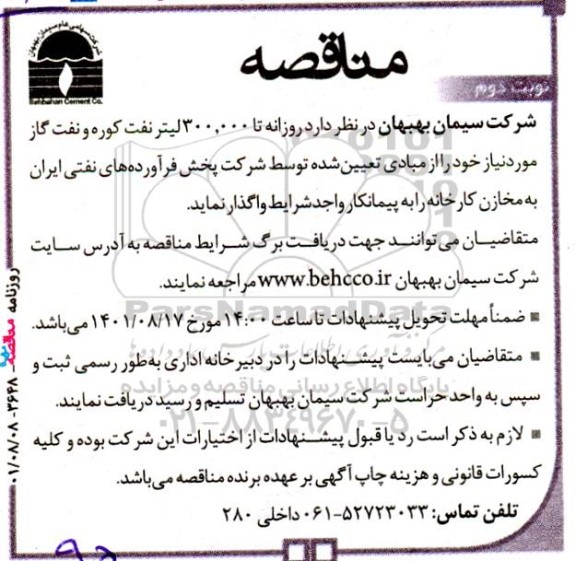 مناقصه
نوبت دوم
شرکت سهامی عام سیمان بهبهان
Behbahan Cement Co.
شرکت سیمان بهبهان در نظر دارد روزانه تا ۳۰۰,۰۰۰ لیتر نفت کوره و نفت گاز
مورد نیاز خود را از مبادی تعیین‌شده توسط شرکت پخش فرآورده‌های نفتی ایران
به مخازن کارخانه را به پیمانکار واجد شرایط واگذار نماید.
متقاضیان می‌توانند جهت دریافت برگ شرایط مناقصه به آدرس سایت
شرکت سیمان بهبهان www.behcco.ir مراجعه نمایند.
ضمناً مهلت تحویل پیشنهادات تا ساعت ۱۴:۰۰ مورخ ۱۴۰۱/۰۸/۱۷ می‌باشد.
متقاضیان می‌بایست پیشنهادات را در دبیرخانه اداری به‌طور رسمی ثبت و
سپس به واحد حراست شرکت سیمان بهبهان تسلیم و رسید دریافت نمایند.
لازم به ذکر است رد یا قبول پیشنهادات از اختیارات این شرکت بوده و کلیه
کسورات قانونی و هزینه چاپ آگهی بر عهده برنده مناقصه می‌باشد.
تلفن تماس: ۵۲۷۲۳۰۳۳-۰۶۱ داخلی ۲۸۰
روزنامه مناقصه ۳۶۴۸-۰۱/۰۸/۰۸
ParsNamadData
پایگاه اطلاع رسانی مناقصه و مزایده
۰۲۱-۸۸۳۴۹۶۷۰-۵